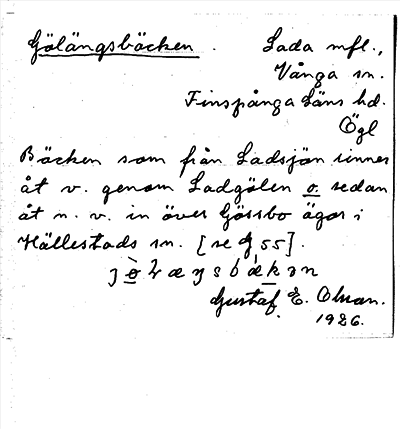 Gölängsbäcken. Lada mfl.,
Vånga sn.
Finspånga Läns hd.
Ögl
Bäcken som från Ladsjön rinner
åt v. genom Ladgölen o. sedan
åt n. v. in över Gössbo ägor i
Hällestads sn. [se 55].
Gustaf E. Olsson.
1926.